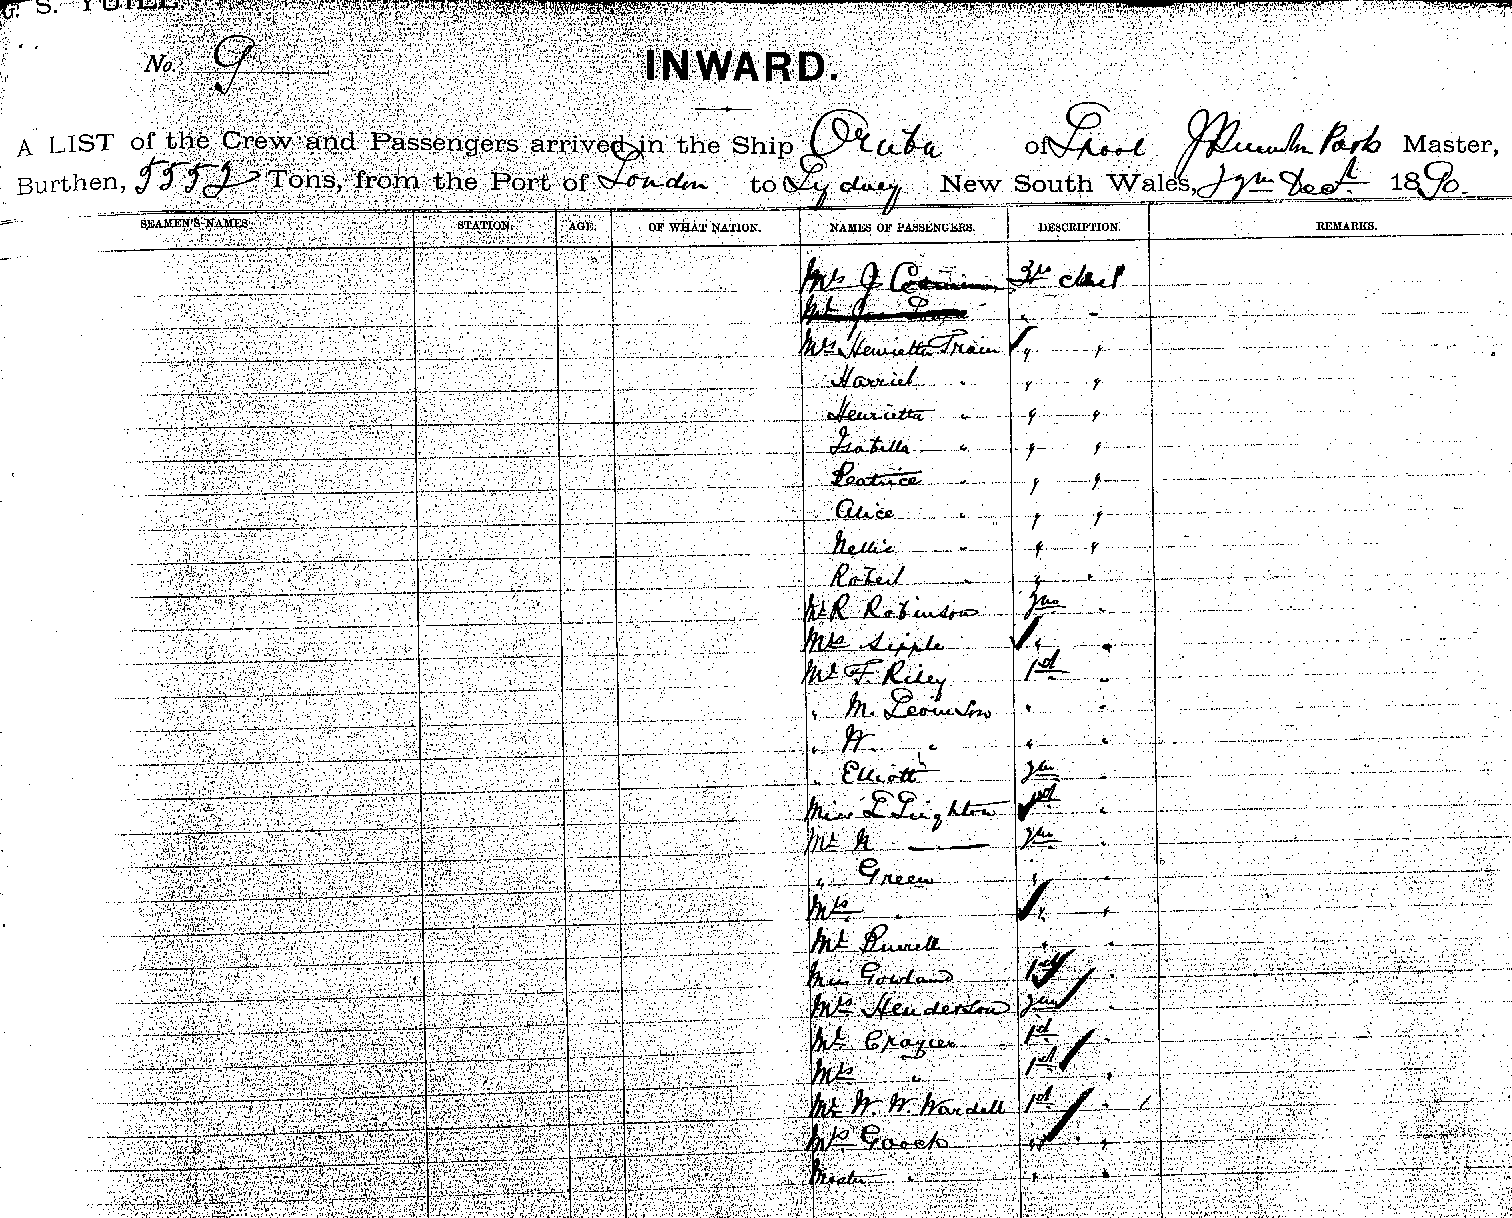 G. S. YUILL
No. 9
INWARD.
A LIST of the Crew and Passengers arrived in the Ship Oruba of L'pool Master,
Burthen, 5552 Tons, from the Port of London to Sydney New South Wales, Dec 1890.
SEAMEN'S NAMES. STATION. AGE. OF WHAT NATION. NAMES OF PASSENGERS. DESCRIPTION. REMARKS.
Mrs J
Mrs Henrietta Train " "
Harriet " " "
Henrietta " " "
Isabella " " "
Beatrice " " "
Alice " " "
Nellie " " "
Robert " " "
Mr R Robinson "
Mrs Sipple " "
Mr F. Riley 1st "
" M. " "
" W. " " "
" Elliott "
Miss L Leighton 1st "
Mr "
" Green " "
Mrs " " "
Mr " "
Miss Gowland 1st "
Mrs Henderson "
Mr Crozier 1st "
Mrs " 1st "
Mr W. W. Wardell 1st "
Mrs Gooch " "
Master " " "